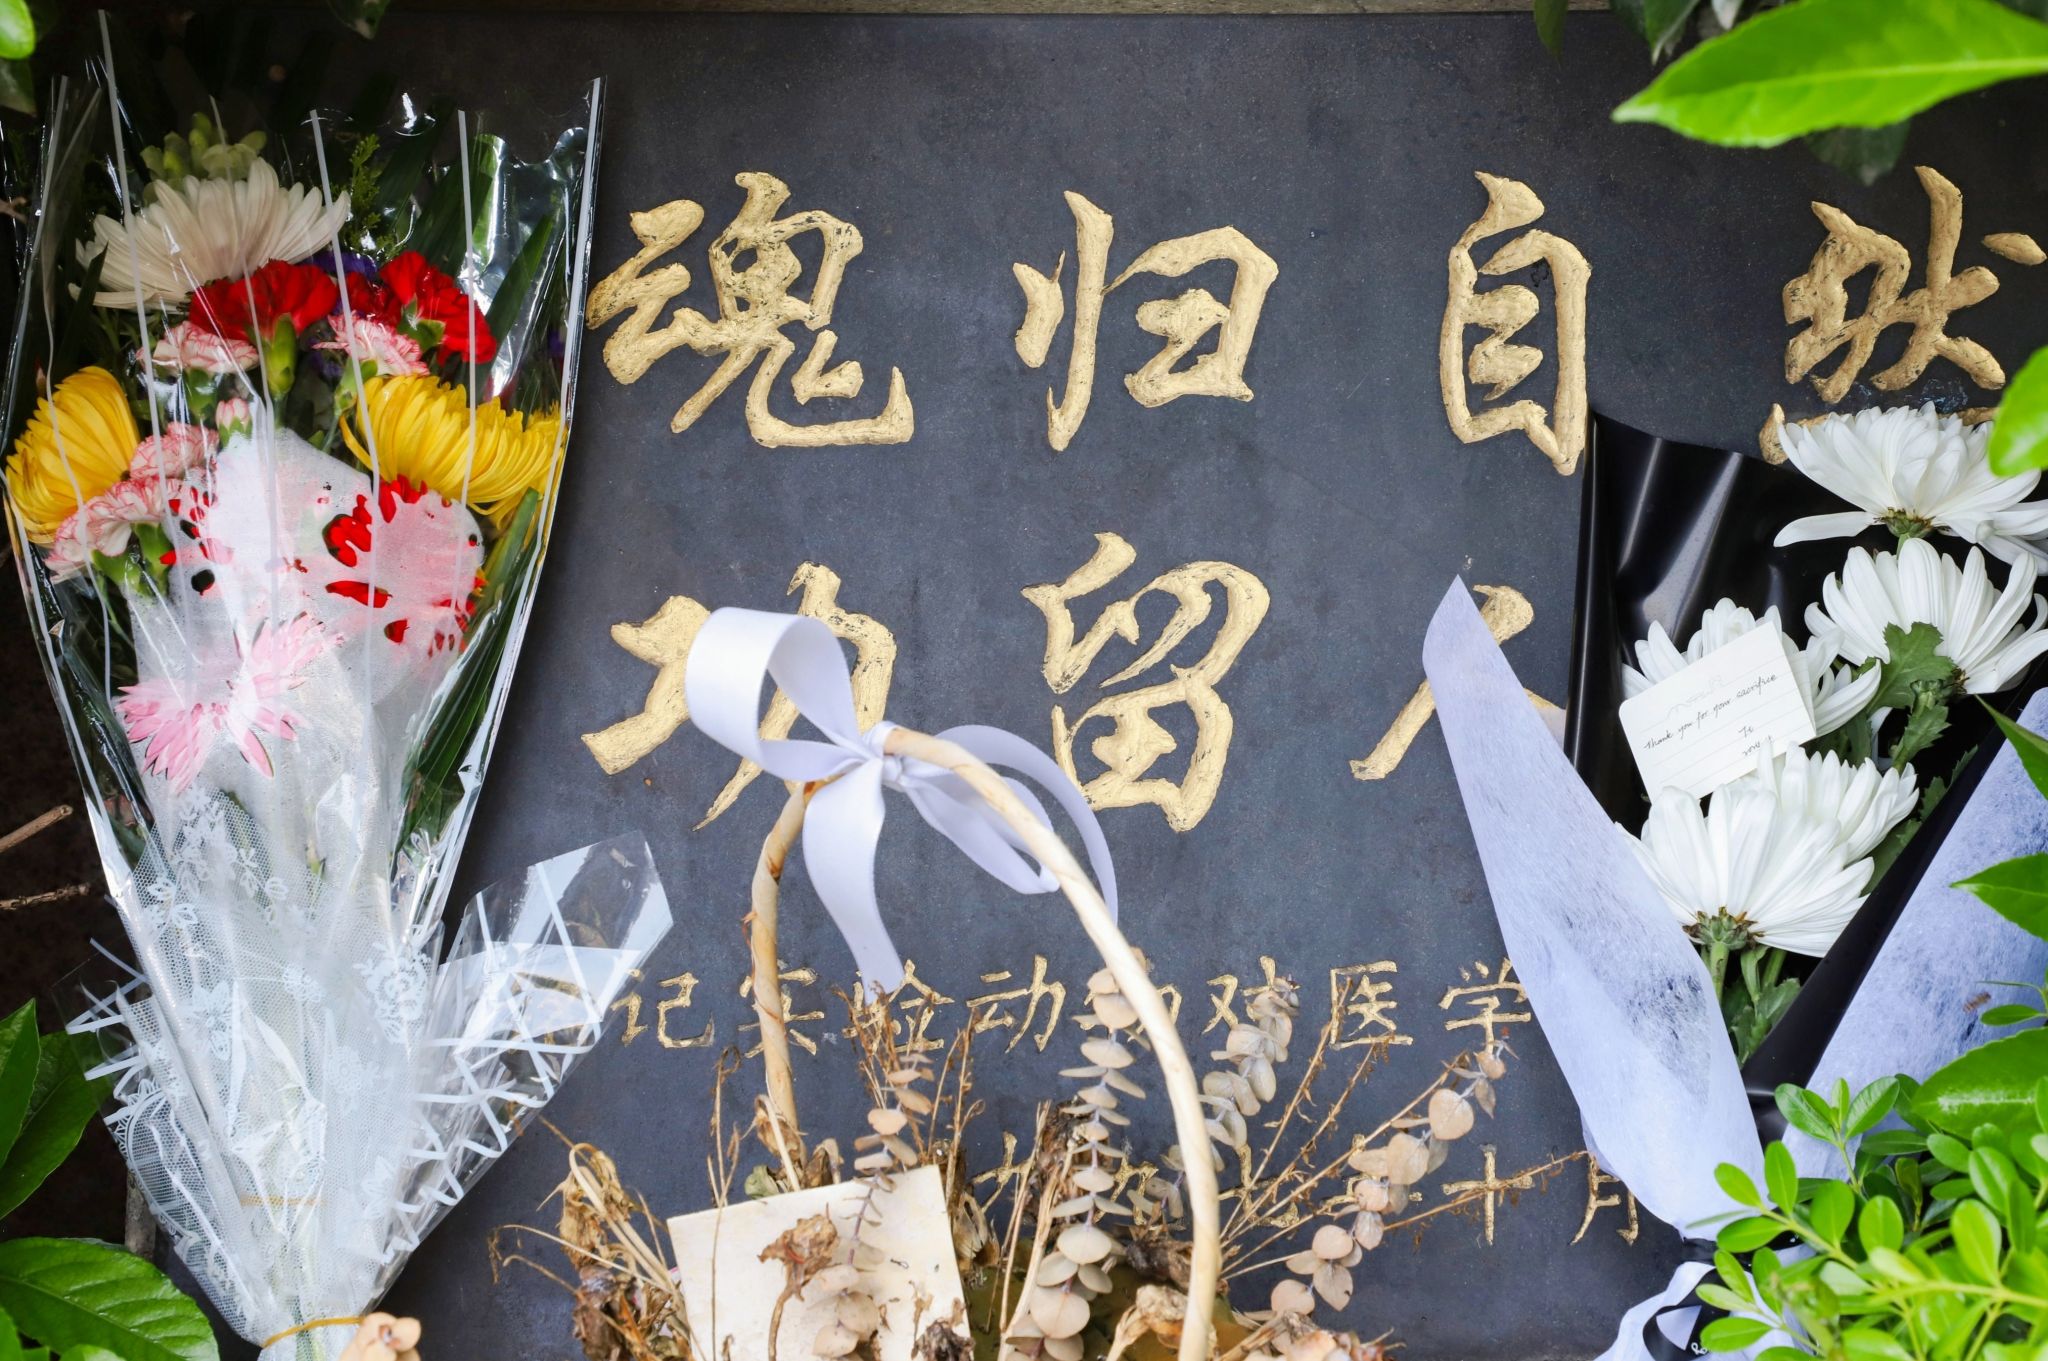 魂归自然
功留人
记实验动物对医学
十月
Thank you for your sacrifice